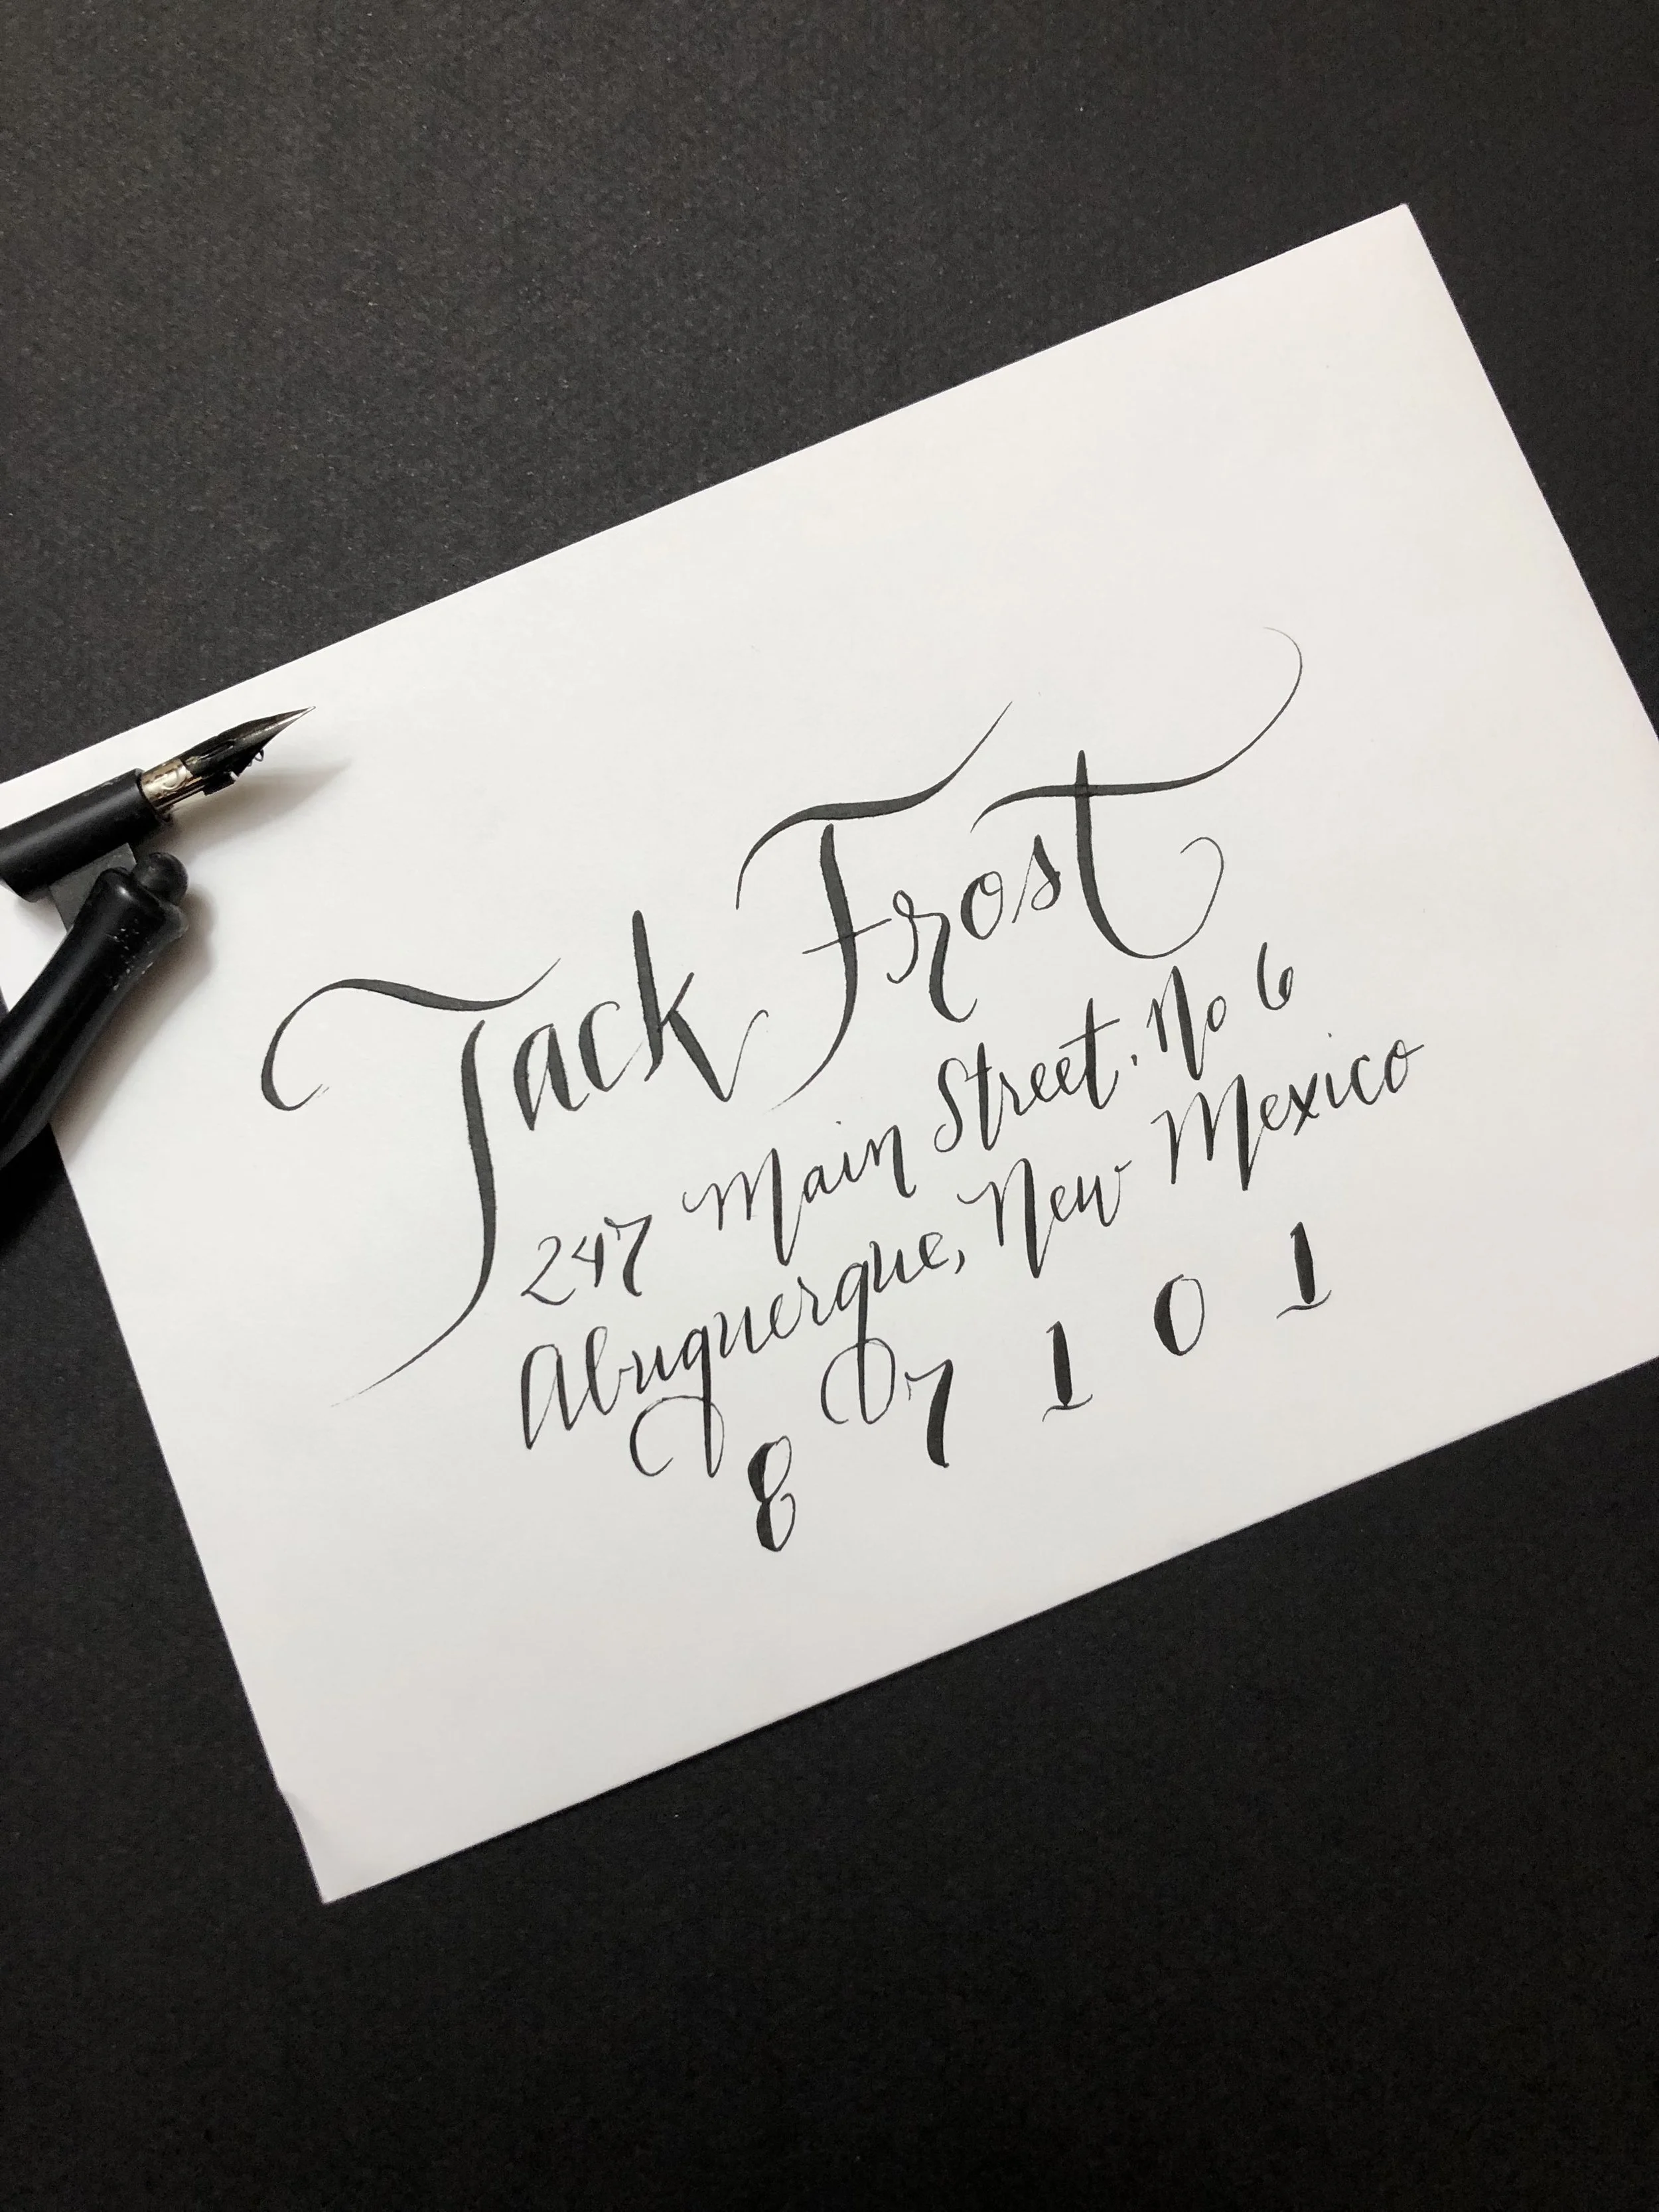 Jack Frost
247 Main Street. No 6
Albuquerque, New Mexico
8 7 1 0 1